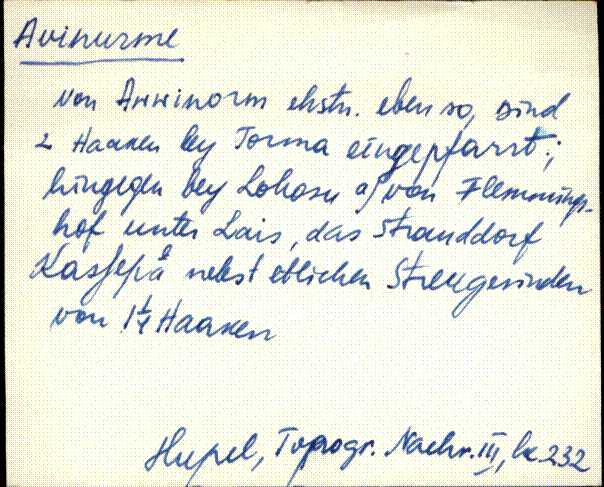 Avinurme
von Awwinorm ehstn. ebenso, sind
2 Haaken bey Torma eingepfarrt;
hingegen bey Lohosu a) von Flemmings-
hof unter Lais, das Stranddorf
Kassepä nebst etlichen Streugesinden
von 1¼ Haaken
Hupel, Topogr. Nachr. III, lk 232